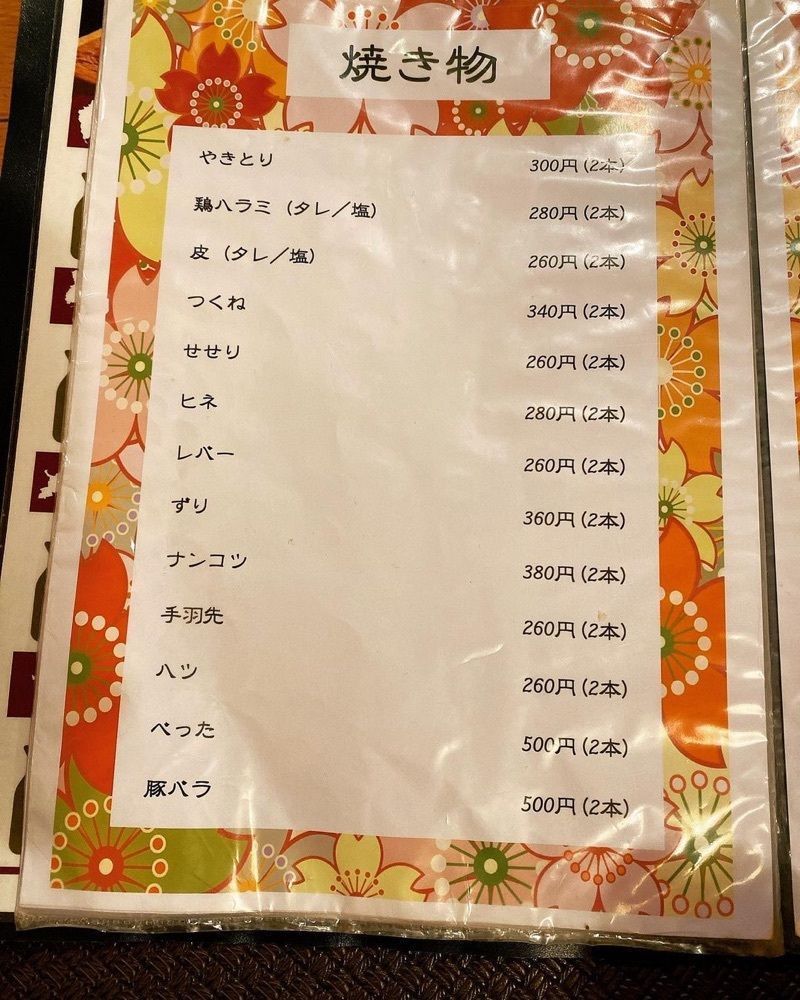 焼き物
やきとり 300円(2本)
鶏ハラミ (タレ／塩) 280円(2本)
皮 (タレ／塩) 260円(2本)
つくね 340円(2本)
せせり 260円(2本)
ヒネ 280円(2本)
レバー 260円(2本)
ずり 360円(2本)
ナンコツ 380円(2本)
手羽先 260円(2本)
ハツ 260円(2本)
べった 500円(2本)
豚バラ 500円(2本)